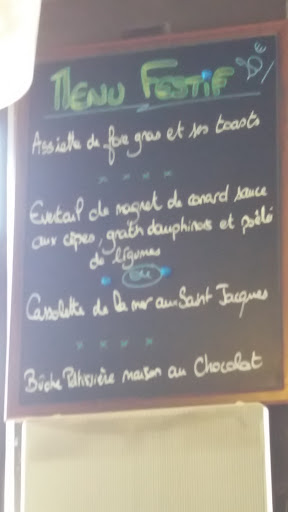 MENU FESTIF
Assiette de foie gras et ses toasts
x x x x
Eventail de magret de canard sauce
aux cèpes, gratin dauphinois et poêlé
de légumes
ou
Cassolette de la mer aux Saint Jacques
x x x x
Bûche Pâtissière maison au Chocolat